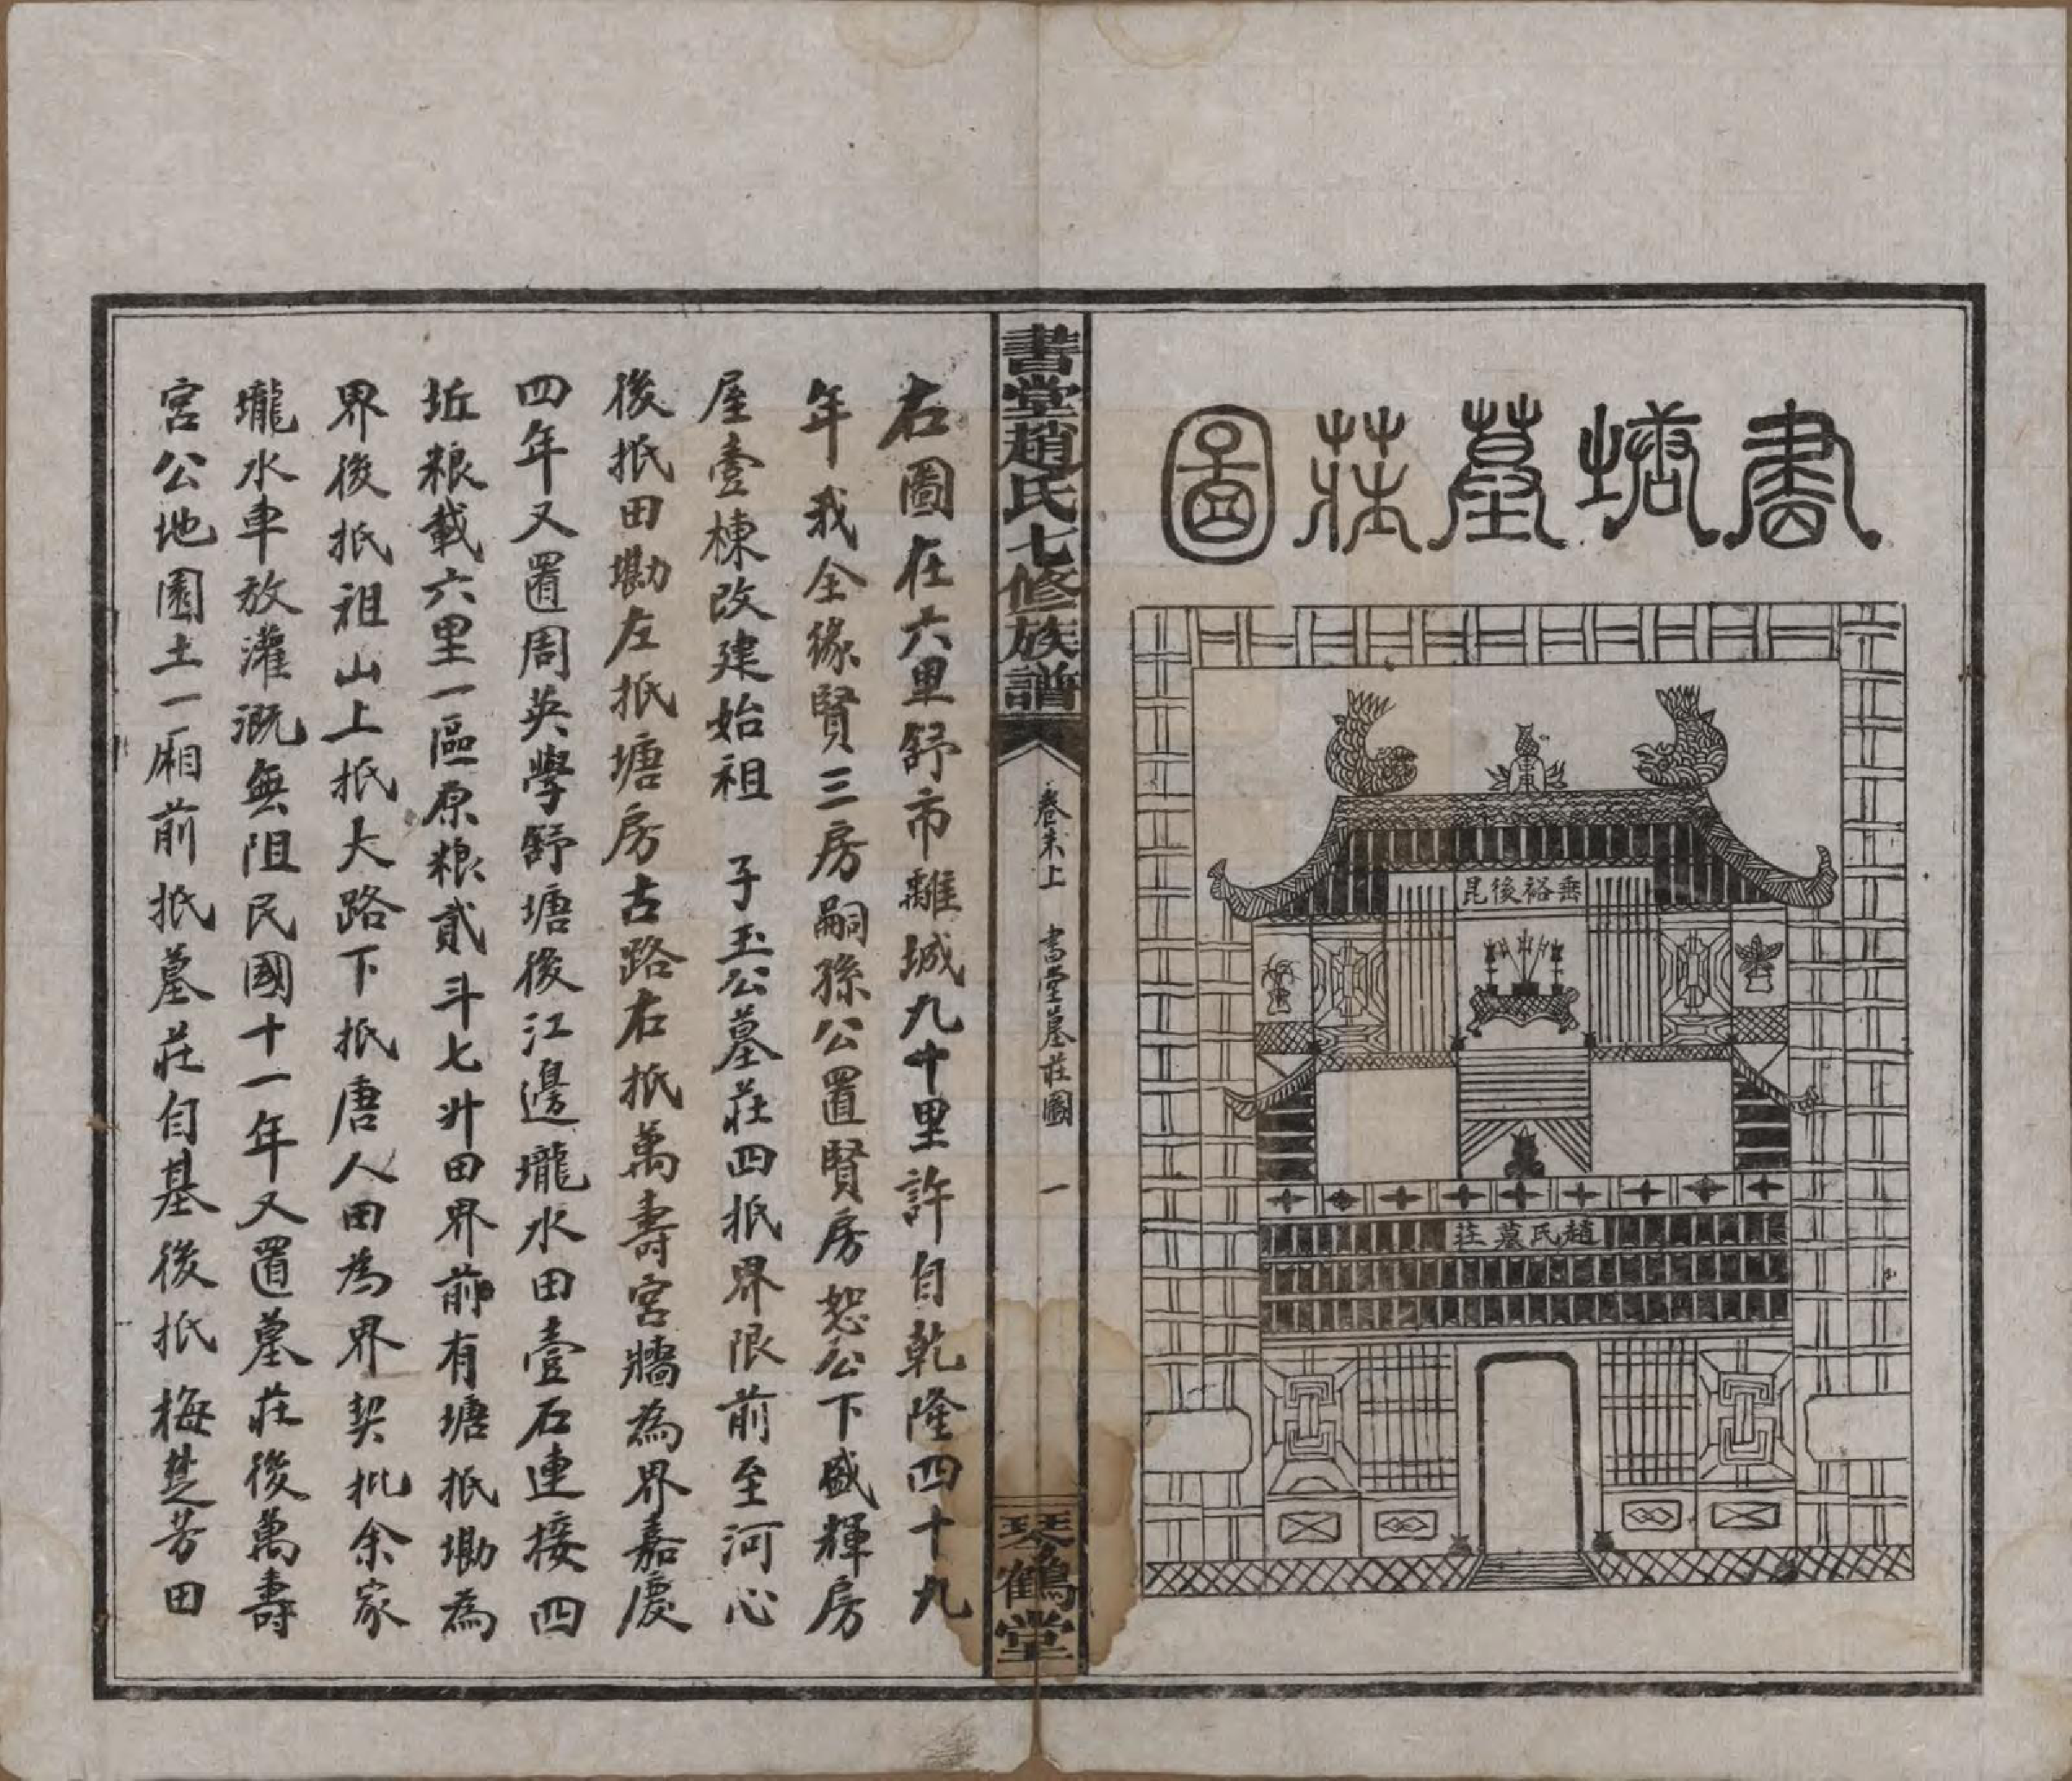 書塘墓莊圖
垂裕後昆
趙氏墓莊
書堂趙氏七修族譜
卷末上　書堂墓莊圖　一
琴鶴堂
右圖在六里舒市離城九十里許自乾隆四十九
年我全緣賢三房嗣孫公置賢房恕公下盛輝房
屋壹棟改建始祖　子玉公墓莊四抵界限前至河心
後抵田墈左抵塘房古路右抵萬壽宮牆為界嘉慶
四年又置周英學舒塘後江邊壠水田壹石連接四
坵粮載六里一區原粮貳斗七升田界前有塘抵墈為
界後抵祖山上抵大路下抵唐人田為界契批余家
壠水車放灌溉無阻民國十一年又置墓莊後萬壽
宮公地園土一廂前抵墓莊自基後抵梅楚芳田